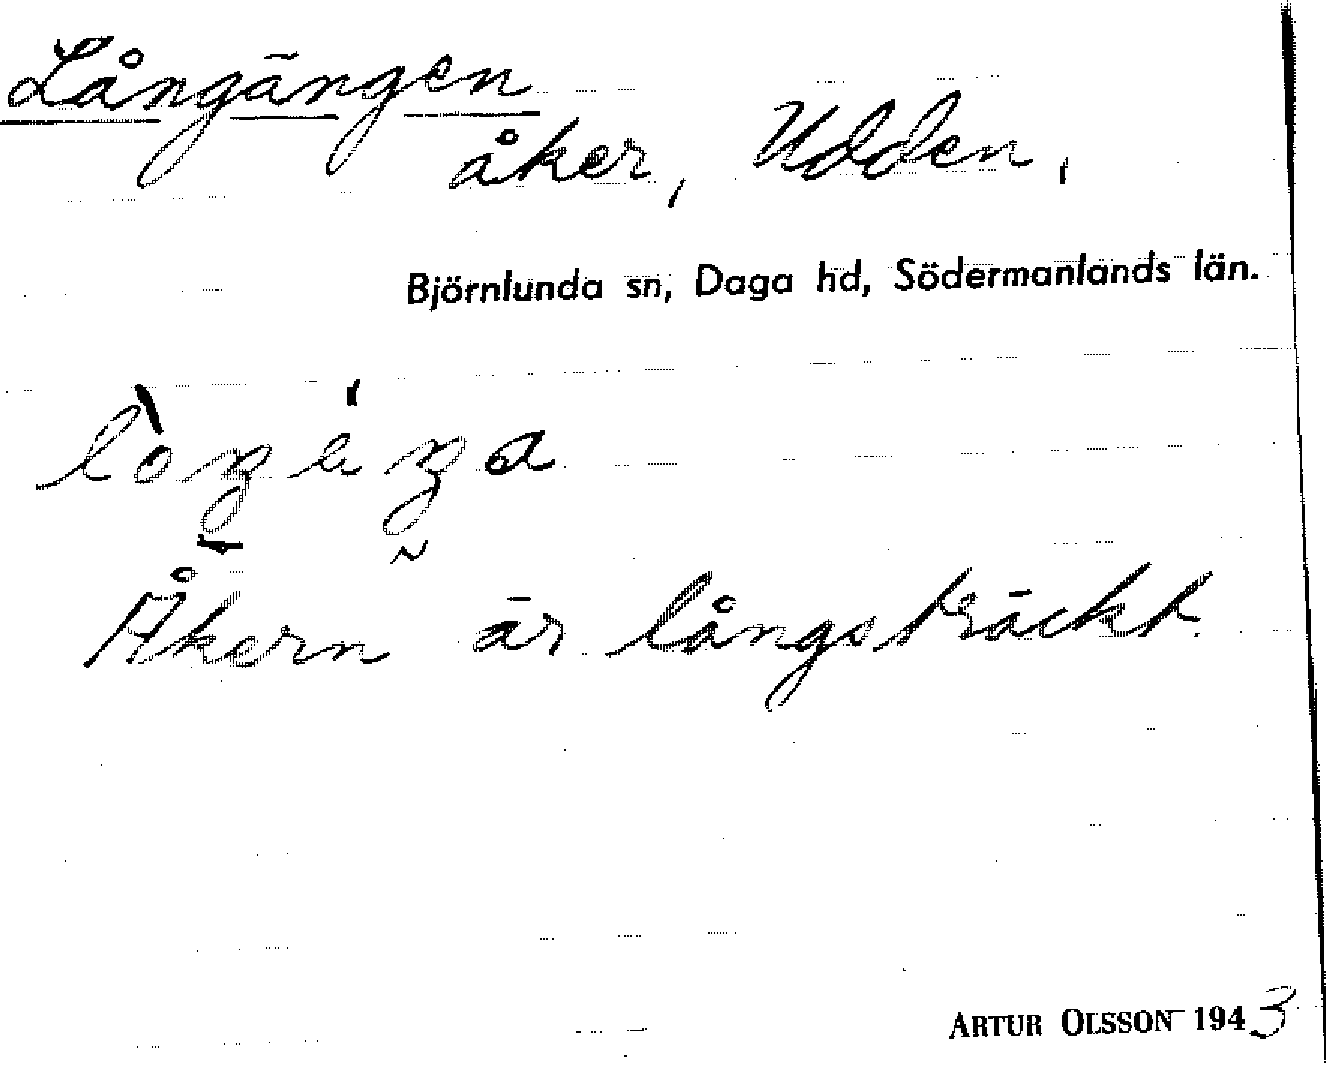 Långängen
åker, Udden,
Björnlunda sn, Daga hd, Södermanlands län.
Åkern är långsträckt.
ARTUR OLSSON 1943